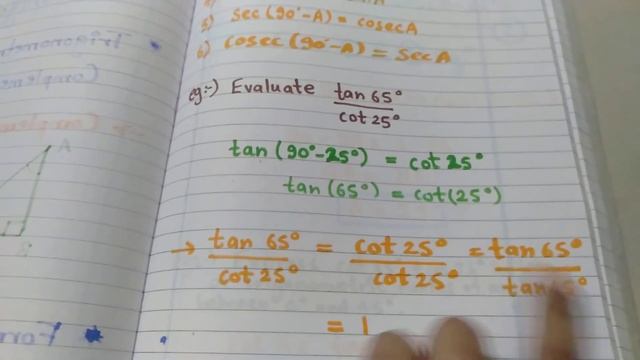 5) sec (90°-A) = cosec A
6) cosec (90°-A) = sec A
eg:-) Evaluate tan 65° / cot 25°
tan (90°-25°) = cot 25°
tan (65°) = cot (25°)
→ tan 65° / cot 25° = cot 25° / cot 25° = tan 65° / tan 65°
= 1
A
B